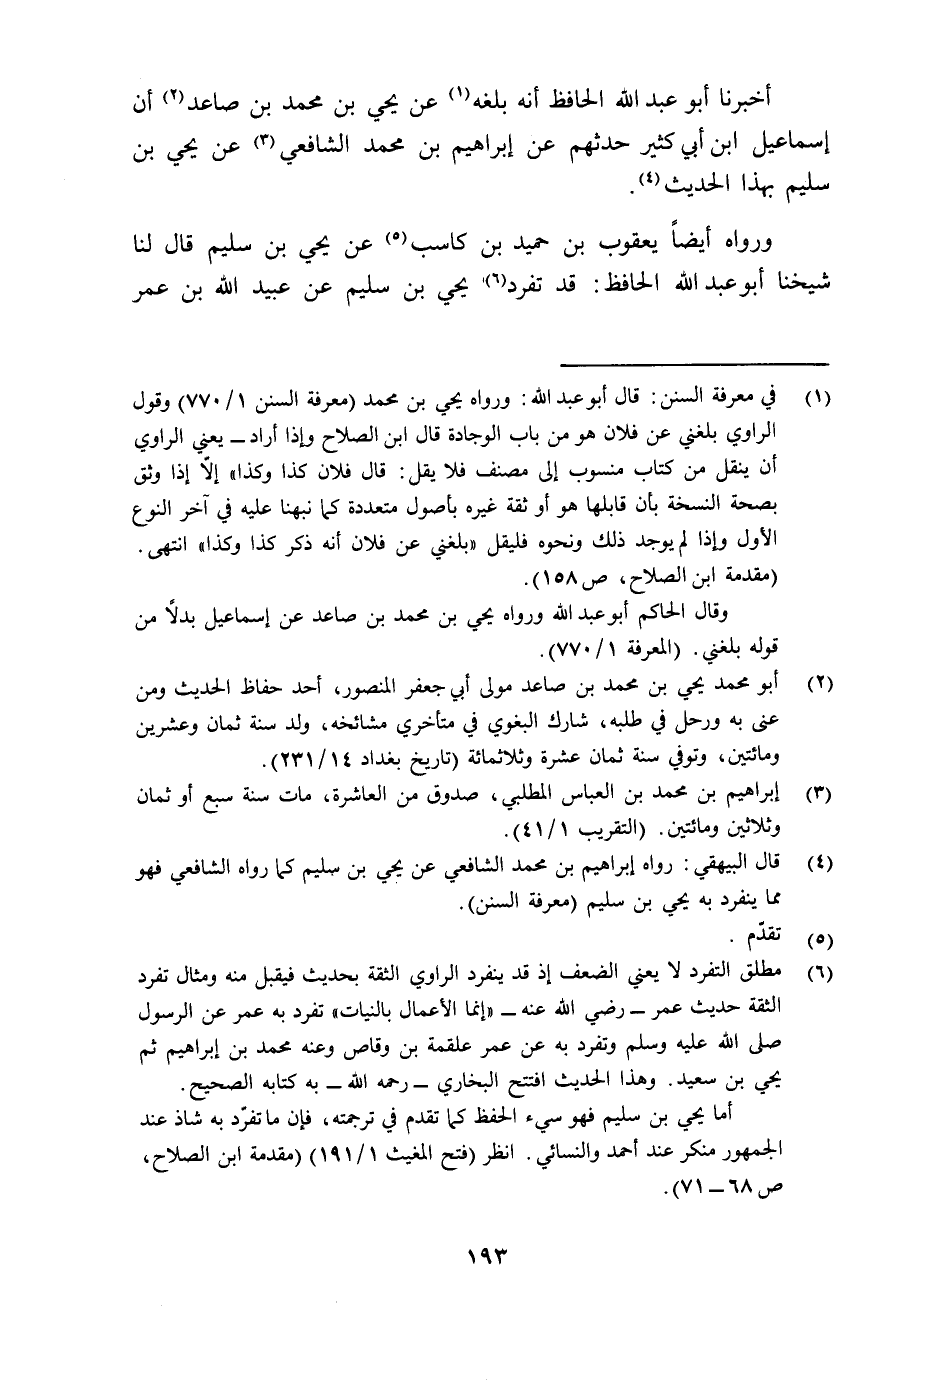 أخبرنا أبو عبد الله الحافظ أنه بلغه(١) عن يحي بن محمد بن صاعد(٢) أن
إسماعيل ابن أبي كثير حدثهم عن إبراهيم بن محمد الشافعي(٣) عن يحي بن
سليم بهذا الحديث(٤).
ورواه أيضاً يعقوب بن حميد بن كاسب(٥) عن يحي بن سليم قال لنا
شيخنا أبو عبد الله الحافظ: قد تفرد(٦) يحي بن سليم عن عبيد الله بن عمر
(١) في معرفة السنن: قال أبو عبد الله: ورواه يحي بن محمد (معرفة السنن ١/ ٧٧٠) وقول
الراوي بلغني عن فلان هو من باب الوجادة قال ابن الصلاح وإذا أراد ــ يعني الراوي
أن ينقل من كتاب منسوب إلى مصنف فلا يقل: قال فلان كذا وكذا» إلّا إذا وثق
بصحة النسخة بأن قابلها هو أو ثقة غيره بأصول متعددة كما نبهنا عليه في آخر النوع
الأول وإذا لم يوجد ذلك ونحوه فليقل «بلغني عن فلان أنه ذكر كذا وكذا» انتهى.
(مقدمة ابن الصلاح، ص ١٥٨).
وقال الحاكم أبو عبد الله ورواه يحي بن محمد بن صاعد عن إسماعيل بدلاً من
قوله بلغني. (المعرفة ١/ ٧٧٠).
(٢) أبو محمد يحي بن محمد بن صاعد مولى أبي جعفر المنصور، أحد حفاظ الحديث ومن
عنى به ورحل في طلبه، شارك البغوي في متأخري مشائخه، ولد سنة ثمان وعشرين
ومائتين، وتوفي سنة ثمان عشرة وثلاثمائة (تاريخ بغداد ١٤/ ٢٣١).
(٣) إبراهيم بن محمد بن العباس المطلبي، صدوق من العاشرة، مات سنة سبع أو ثمان
وثلاثين ومائتين. (التقريب ١/ ٤١).
(٤) قال البيهقي: رواه إبراهيم بن محمد الشافعي عن يحي بن سليم كما رواه الشافعي فهو
مما ينفرد به يحي بن سليم (معرفة السنن).
(٥) تقدّم.
(٦) مطلق التفرد لا يعني الضعف إذ قد ينفرد الراوي الثقة بحديث فيقبل منه ومثال تفرد
الثقة حديث عمر ــ رضي الله عنه ــ «إنما الأعمال بالنيات» تفرد به عمر عن الرسول
صلى الله عليه وسلم وتفرد به عن عمر علقمة بن وقاص وعنه محمد بن إبراهيم ثم
يحي بن سعيد. وهذا الحديث افتتح البخاري ــ رحمه الله ــ به كتابه الصحيح.
أما يحي بن سليم فهو سيء الحفظ كما تقدم في ترجمته، فإن ما تفرّد به شاذ عند
الجمهور منكر عند أحمد والنسائي. انظر (فتح المغيث ١/ ١٩١) (مقدمة ابن الصلاح،
ص ٦٨ ــ ٧١).
١٩٣